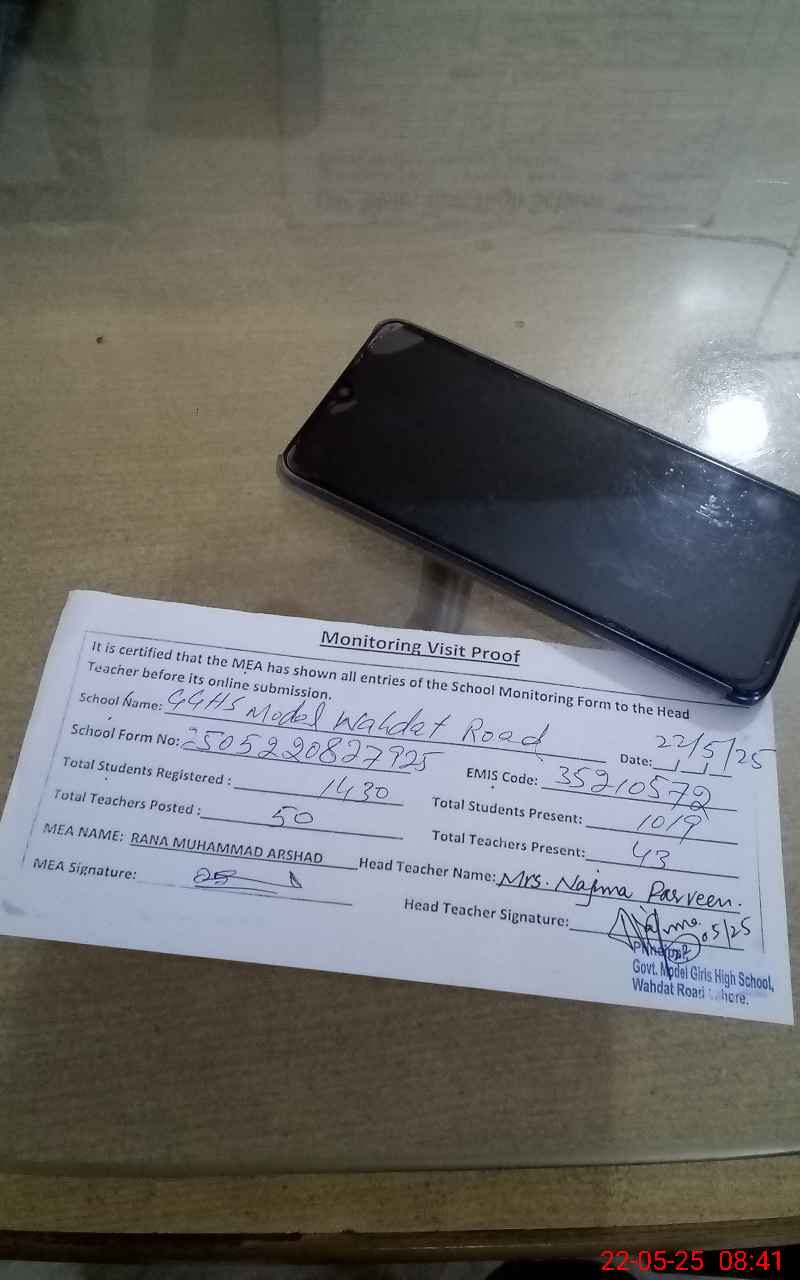 Monitoring Visit Proof
It is certified that the MEA has shown all entries of the School Monitoring Form to the Head
Teacher before its online submission.
School Name: GGHS Model Wahdat Road
Date: 22/5/25
School Form No: 2505220827925
EMIS Code: 35210572
Total Students Registered : 1430
Total Students Present: 1019
Total Teachers Posted : 50
Total Teachers Present: 43
MEA NAME: RANA MUHAMMAD ARSHAD
Head Teacher Name: Mrs. Najma Parveen.
MEA Signature:
Head Teacher Signature:
05/25
Principal
Govt. Model Girls High School,
Wahdat Road Lahore.
22-05-25 08:41